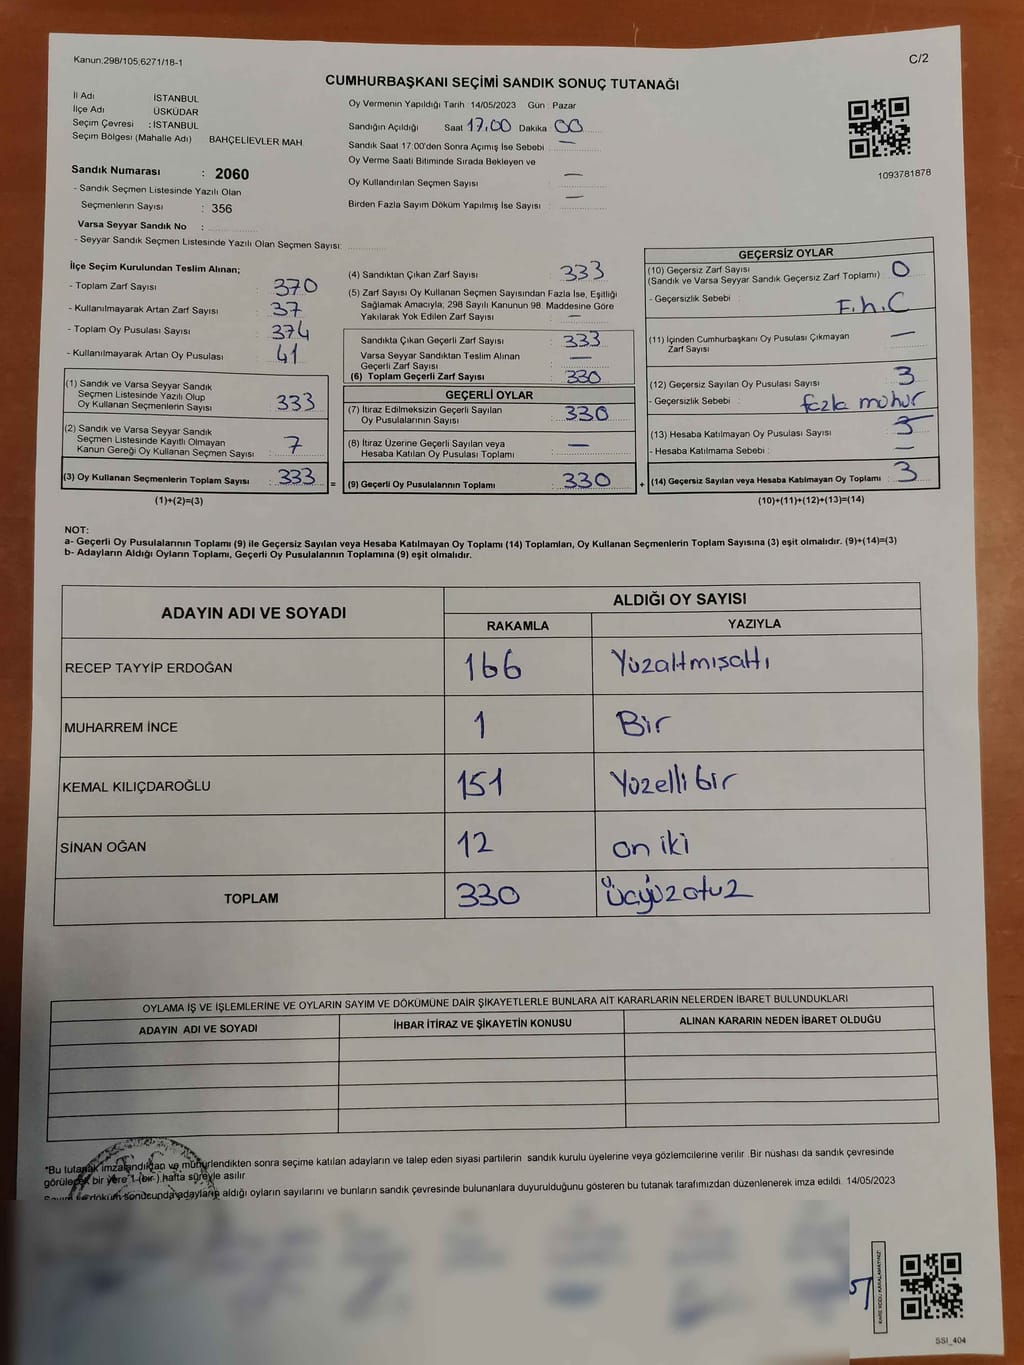 Kanun.298/105,6271/18-1
C/2
CUMHURBAŞKANI SEÇİMİ SANDIK SONUÇ TUTANAĞI
İl Adı İSTANBUL
İlçe Adı ÜSKÜDAR
Seçim Çevresi : İSTANBUL
Seçim Bölgesi (Mahalle Adı) BAHÇELİEVLER MAH
Sandık Numarası : 2060
- Sandık Seçmen Listesinde Yazılı Olan
Seçmenlerin Sayısı : 356
Varsa Seyyar Sandık No :
- Seyyar Sandık Seçmen Listesinde Yazılı Olan Seçmen Sayısı:
Oy Vermenin Yapıldığı Tarih : 14/05/2023 Gün : Pazar
Sandığın Açıldığı Saat 17.00 Dakika 00
Sandık Saat 17:00'den Sonra Açımış İse Sebebi : —
Oy Verme Saati Bitiminde Sırada Bekleyen ve
Oy Kullandırılan Seçmen Sayısı : —
Birden Fazla Sayım Döküm Yapılmış İse Sayısı : —
1093781878
İlçe Seçim Kurulundan Teslim Alınan;
- Toplam Zarf Sayısı : 370
- Kullanılmayarak Artan Zarf Sayısı : 37
- Toplam Oy Pusulası Sayısı : 374
- Kullanılmayarak Artan Oy Pusulası : 41
(1) Sandık ve Varsa Seyyar Sandık
Seçmen Listesinde Yazılı Olup
Oy Kullanan Seçmenlerin Sayısı : 333
(2) Sandık ve Varsa Seyyar Sandık
Seçmen Listesinde Kayıtlı Olmayan
Kanun Gereği Oy Kullanan Seçmen Sayısı : 7
(3) Oy Kullanan Seçmenlerin Toplam Sayısı : 333 =
(1)+(2)=(3)
(4) Sandıktan Çıkan Zarf Sayısı : 333
(5) Zarf Sayısı Oy Kullanan Seçmen Sayısından Fazla İse, Eşitliği
Sağlamak Amacıyla; 298 Sayılı Kanunun 98. Maddesine Göre
Yakılarak Yok Edilen Zarf Sayısı : —
Sandıkta Çıkan Geçerli Zarf Sayısı : 333
Varsa Seyyar Sandıktan Teslim Alınan
Geçerli Zarf Sayısı : —
(6) Toplam Geçerli Zarf Sayısı : 330
GEÇERLİ OYLAR
(7) İtiraz Edilmeksizin Geçerli Sayılan
Oy Pusulalarının Sayısı : 330
(8) İtiraz Üzerine Geçerli Sayılan veya
Hesaba Katılan Oy Pusulası Toplamı : —
(9) Geçerli Oy Pusulalarının Toplamı : 330 +
GEÇERSİZ OYLAR
(10) Geçersiz Zarf Sayısı
(Sandık ve Varsa Seyyar Sandık Geçersiz Zarf Toplamı) : 0
- Geçersizlik Sebebi : F.h.C
(11) İçinden Cumhurbaşkanı Oy Pusulası Çıkmayan
Zarf Sayısı : —
(12) Geçersiz Sayılan Oy Pusulası Sayısı : 3
- Geçersizlik Sebebi : fazla mühür
(13) Hesaba Katılmayan Oy Pusulası Sayısı :
- Hesaba Katılmama Sebebi : —
(14) Geçersiz Sayılan veya Hesaba Katılmayan Oy Toplamı : 3
(10)+(11)+(12)+(13)=(14)
NOT:
a- Geçerli Oy Pusulalarının Toplamı (9) ile Geçersiz Sayılan veya Hesaba Katılmayan Oy Toplamı (14) Toplamları, Oy Kullanan Seçmenlerin Toplam Sayısına (3) eşit olmalıdır. (9)+(14)=(3)
b- Adayların Aldığı Oyların Toplamı, Geçerli Oy Pusulalarının Toplamına (9) eşit olmalıdır.
ADAYIN ADI VE SOYADI
ALDIĞI OY SAYISI
RAKAMLA YAZIYLA
RECEP TAYYİP ERDOĞAN 166 Yüzaltmışaltı
MUHARREM İNCE 1 Bir
KEMAL KILIÇDAROĞLU 151 Yüzelli bir
SİNAN OĞAN 12 on iki
TOPLAM 330 Üçyüzotuz
OYLAMA İŞ VE İŞLEMLERİNE VE OYLARIN SAYIM VE DÖKÜMÜNE DAİR ŞİKAYETLERLE BUNLARA AİT KARARLARIN NELERDEN İBARET BULUNDUKLARI
ADAYIN ADI VE SOYADI İHBAR İTİRAZ VE ŞİKAYETİN KONUSU ALINAN KARARIN NEDEN İBARET OLDUĞU
*Bu tutanak imzalandıktan ve mühürlendikten sonra seçime katılan adayların ve talep eden siyasi partilerin sandık kurulu üyelerine veya gözlemcilerine verilir. Bir nüshası da sandık çevresinde
görülecek bir yere 1 (bir) hafta süreyle asılır
sonucunda adayların aldığı oyların sayılarını ve bunların sandık çevresinde bulunanlara duyurulduğunu gösteren bu tutanak tarafımızdan düzenlenerek imza edildi. 14/05/2023
"KARE KODU KARALAMAYINIZ"
SSI_404